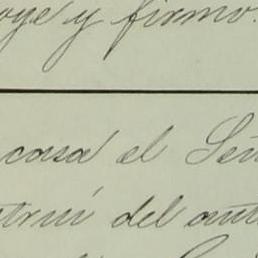 oye y firmo.
casa el Señ
struí del aut